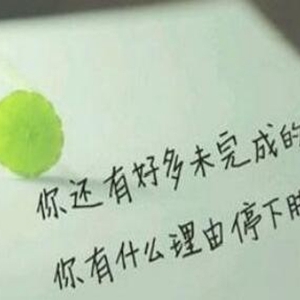 你还有好多未完成的
你有什么理由停下